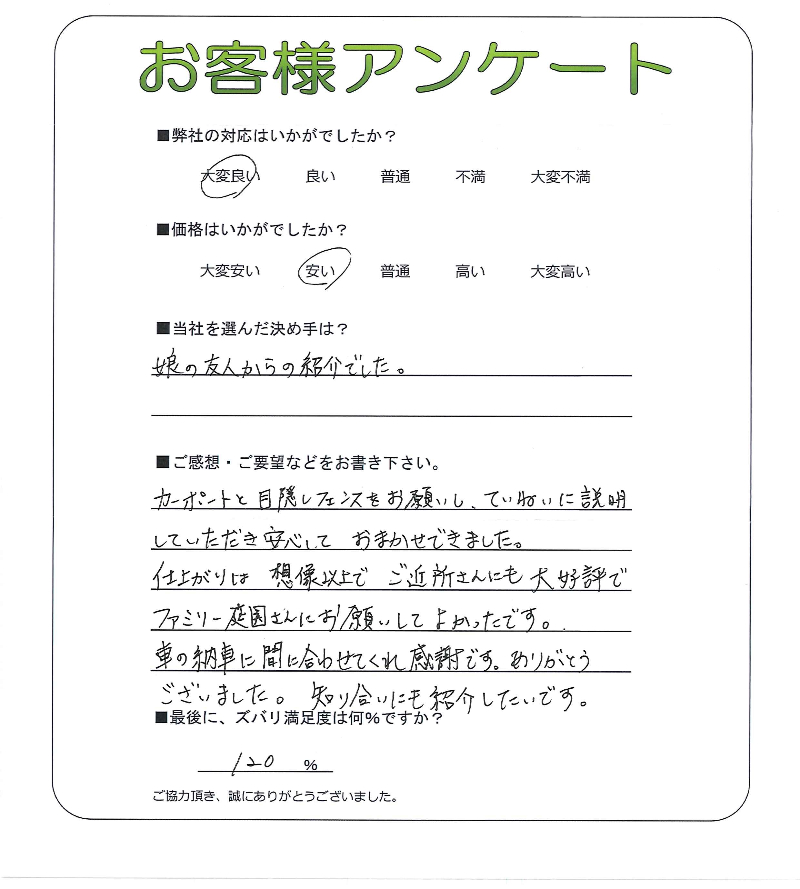 お客様アンケート
■弊社の対応はいかがでしたか？
大変良い 良い 普通 不満 大変不満
■価格はいかがでしたか？
大変安い 安い 普通 高い 大変高い
■当社を選んだ決め手は？
娘の友人からの紹介でした。
■ご感想・ご要望などをお書き下さい。
カーポートと目隠しフェンスをお願いし、ていねいに説明
していただき安心して おまかせできました。
仕上がりは 想像以上で ご近所さんにも大好評で
ファミリー庭園さんにお願いしてよかったです。
車の納車に間に合わせてくれ感謝です。ありがとう
ございました。 知り合いにも紹介したいです。
■最後に、ズバリ満足度は何%ですか？
120 %
ご協力頂き、誠にありがとうございました。